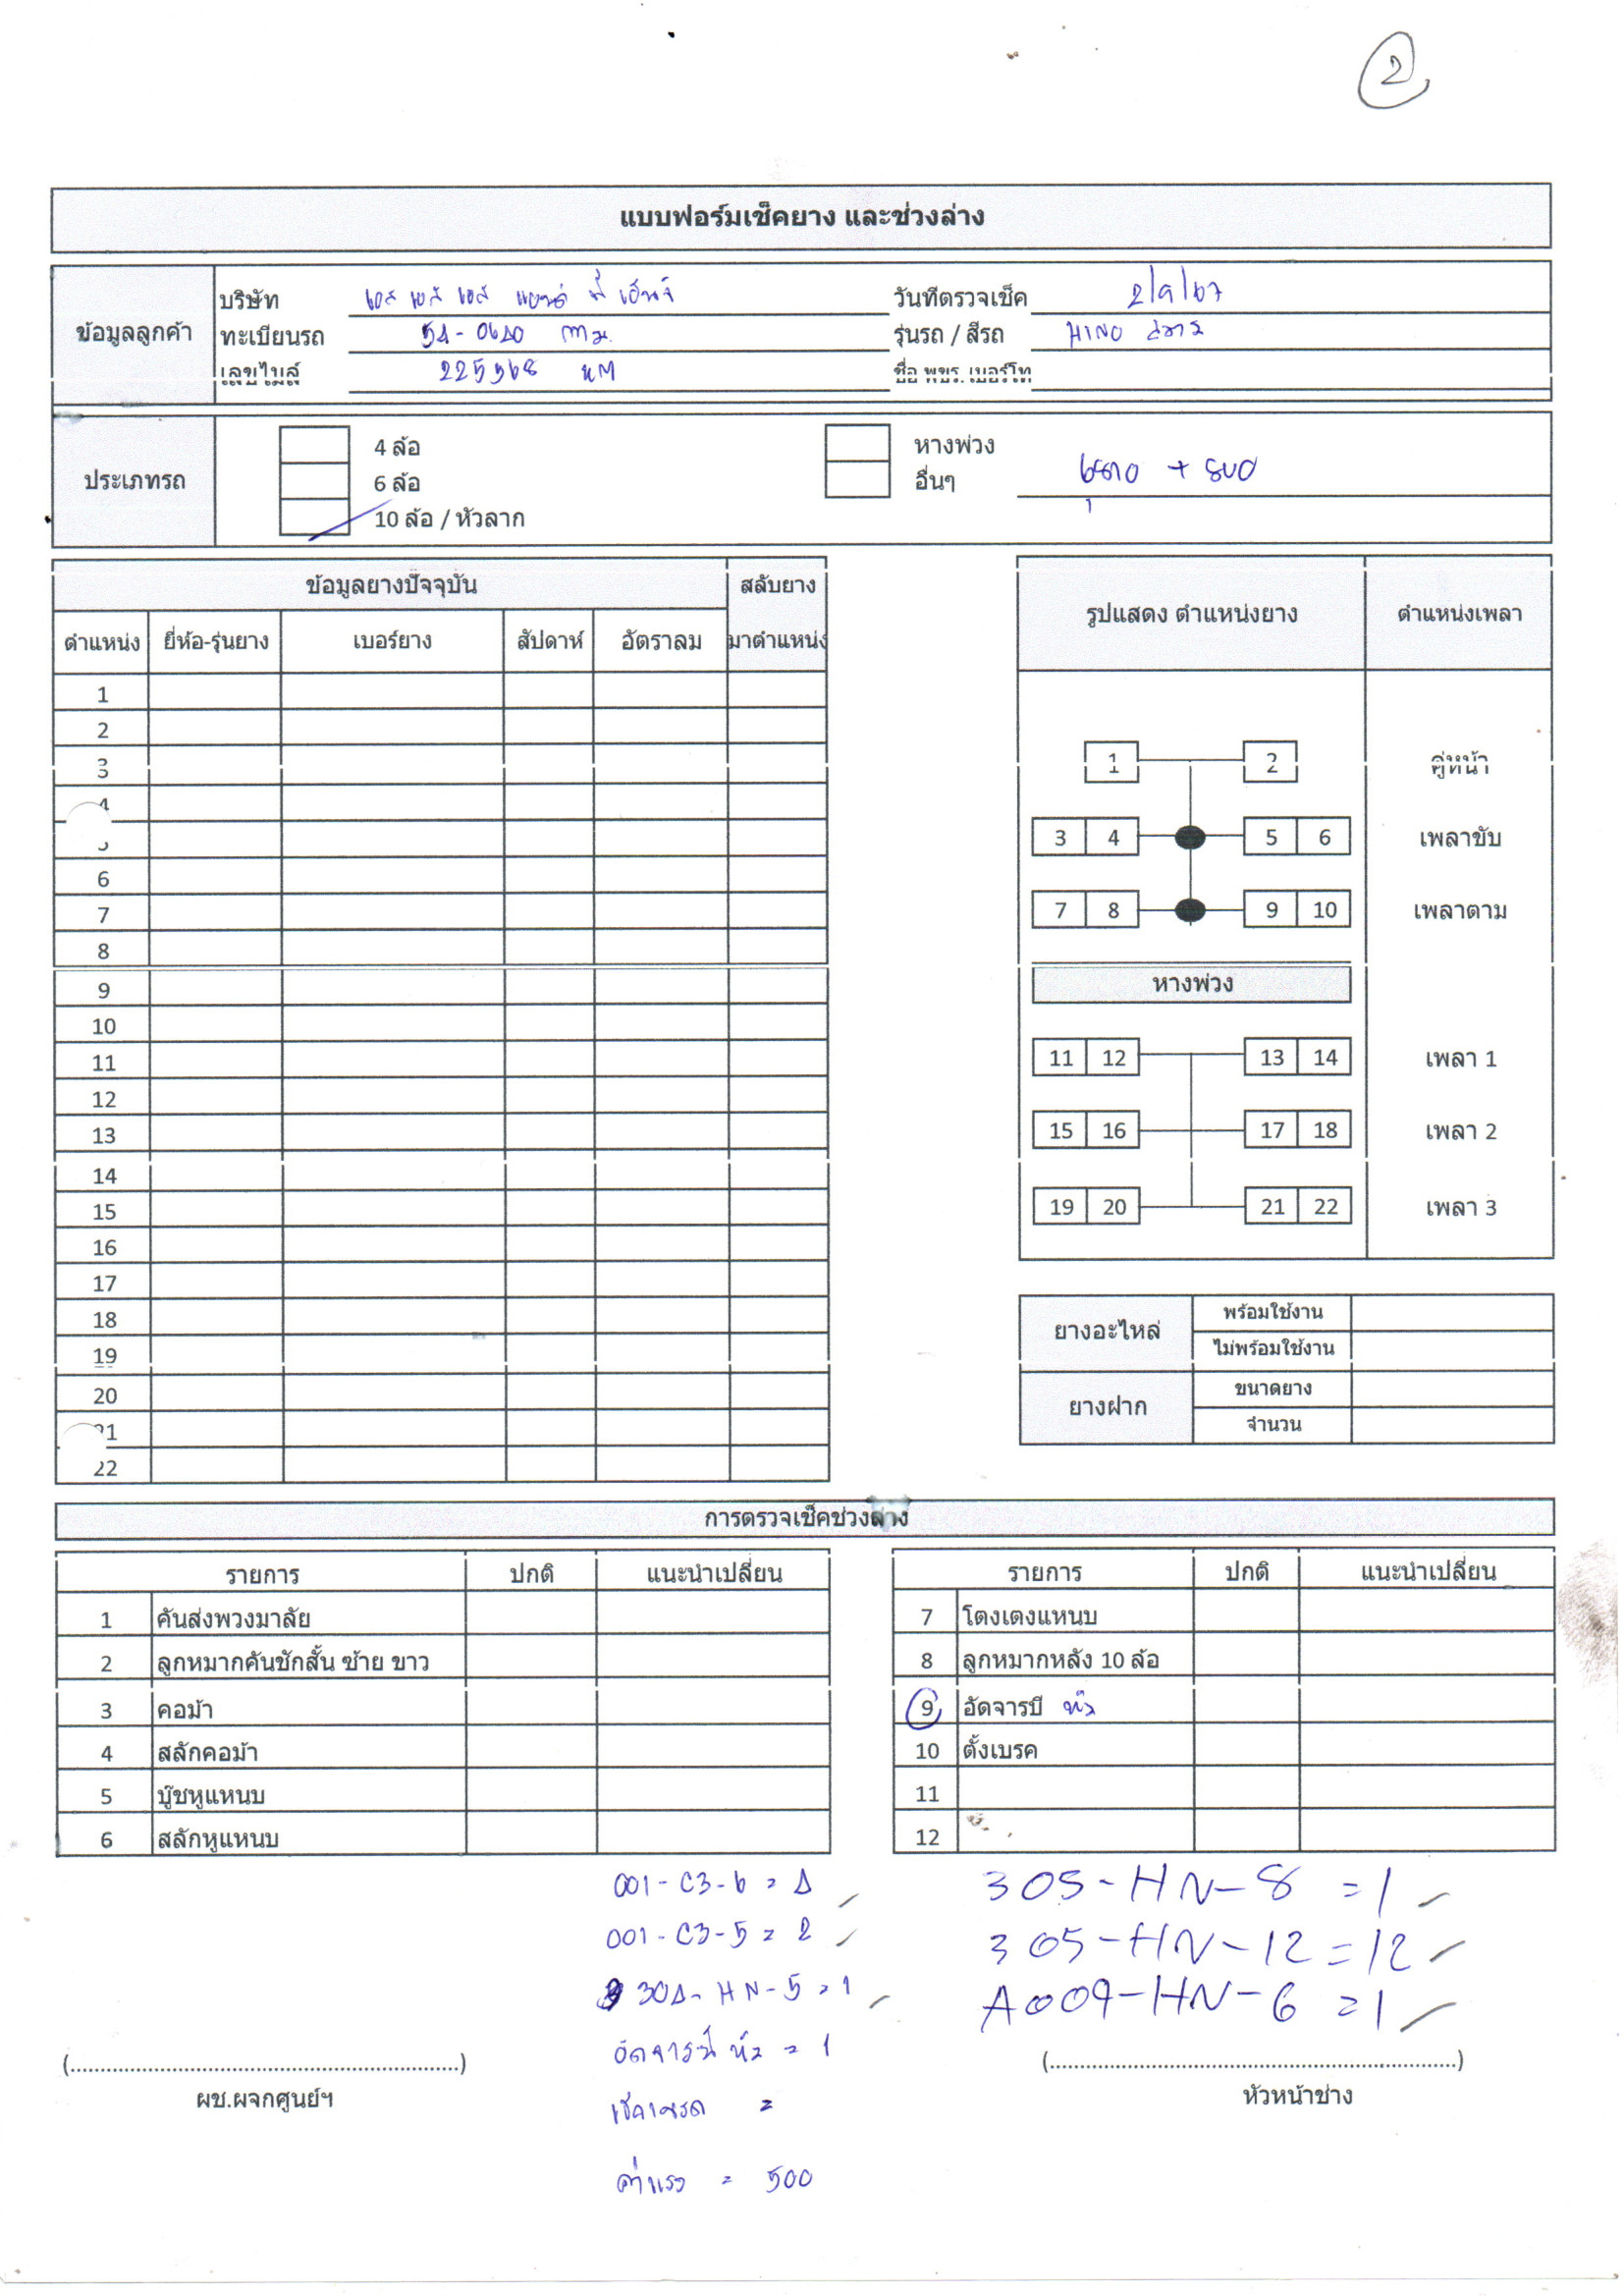 2
แบบฟอร์มเช็คยาง และช่วงล่าง
ข้อมูลลูกค้า
บริษัท เอส เอส เอส แอนด์ พี เอ็นจิ
วันที่ตรวจเช็ค 2/9/67
ทะเบียนรถ 54-0640 กม.
รุ่นรถ / สีรถ HINO ขาว
เลขไมล์ 225968 KM
ชื่อ พขร. เบอร์โท
ประเภทรถ
4 ล้อ
6 ล้อ
10 ล้อ / หัวลาก
หางพ่วง
อื่นๆ
ข้อมูลยางปัจจุบัน สลับยาง
ตำแหน่ง ยี่ห้อ-รุ่นยาง เบอร์ยาง สัปดาห์ อัตราลม มาตำแหน่ง
1
2
3
4
5
6
7
8
9
10
11
12
13
14
15
16
17
18
19
20
21
22
รูปแสดง ตำแหน่งยาง ตำแหน่งเพลา
1 2 คู่หน้า
3 4 5 6 เพลาขับ
7 8 9 10 เพลาตาม
หางพ่วง
11 12 13 14 เพลา 1
15 16 17 18 เพลา 2
19 20 21 22 เพลา 3
ยางอะไหล่
พร้อมใช้งาน
ไม่พร้อมใช้งาน
ยางฝาก
ขนาดยาง
จำนวน
การตรวจเช็คช่วงล่าง
รายการ ปกติ แนะนำเปลี่ยน
1 คันส่งพวงมาลัย
2 ลูกหมากคันชักสั้น ซ้าย ขาว
3 คอม้า
4 สลักคอม้า
5 บู๊ชหูแหนบ
6 สลักหูแหนบ
รายการ ปกติ แนะนำเปลี่ยน
7 โตงเตงแหนบ
8 ลูกหมากหลัง 10 ล้อ
9 อัดจารบี หัว
10 ตั้งเบรค
11
12
001-C3-6 = 4
001-C3-5 = 2
304-HN-5 = 1
อัดจารบี หัว = 1
เช็คเบรค =
ค่าแรง = 500
305-HN-8 = 1
305-HN-12 = 12
A009-HN-6 = 1
(..........................................................)
ผช.ผจกศูนย์ฯ
(..........................................................)
หัวหน้าช่าง